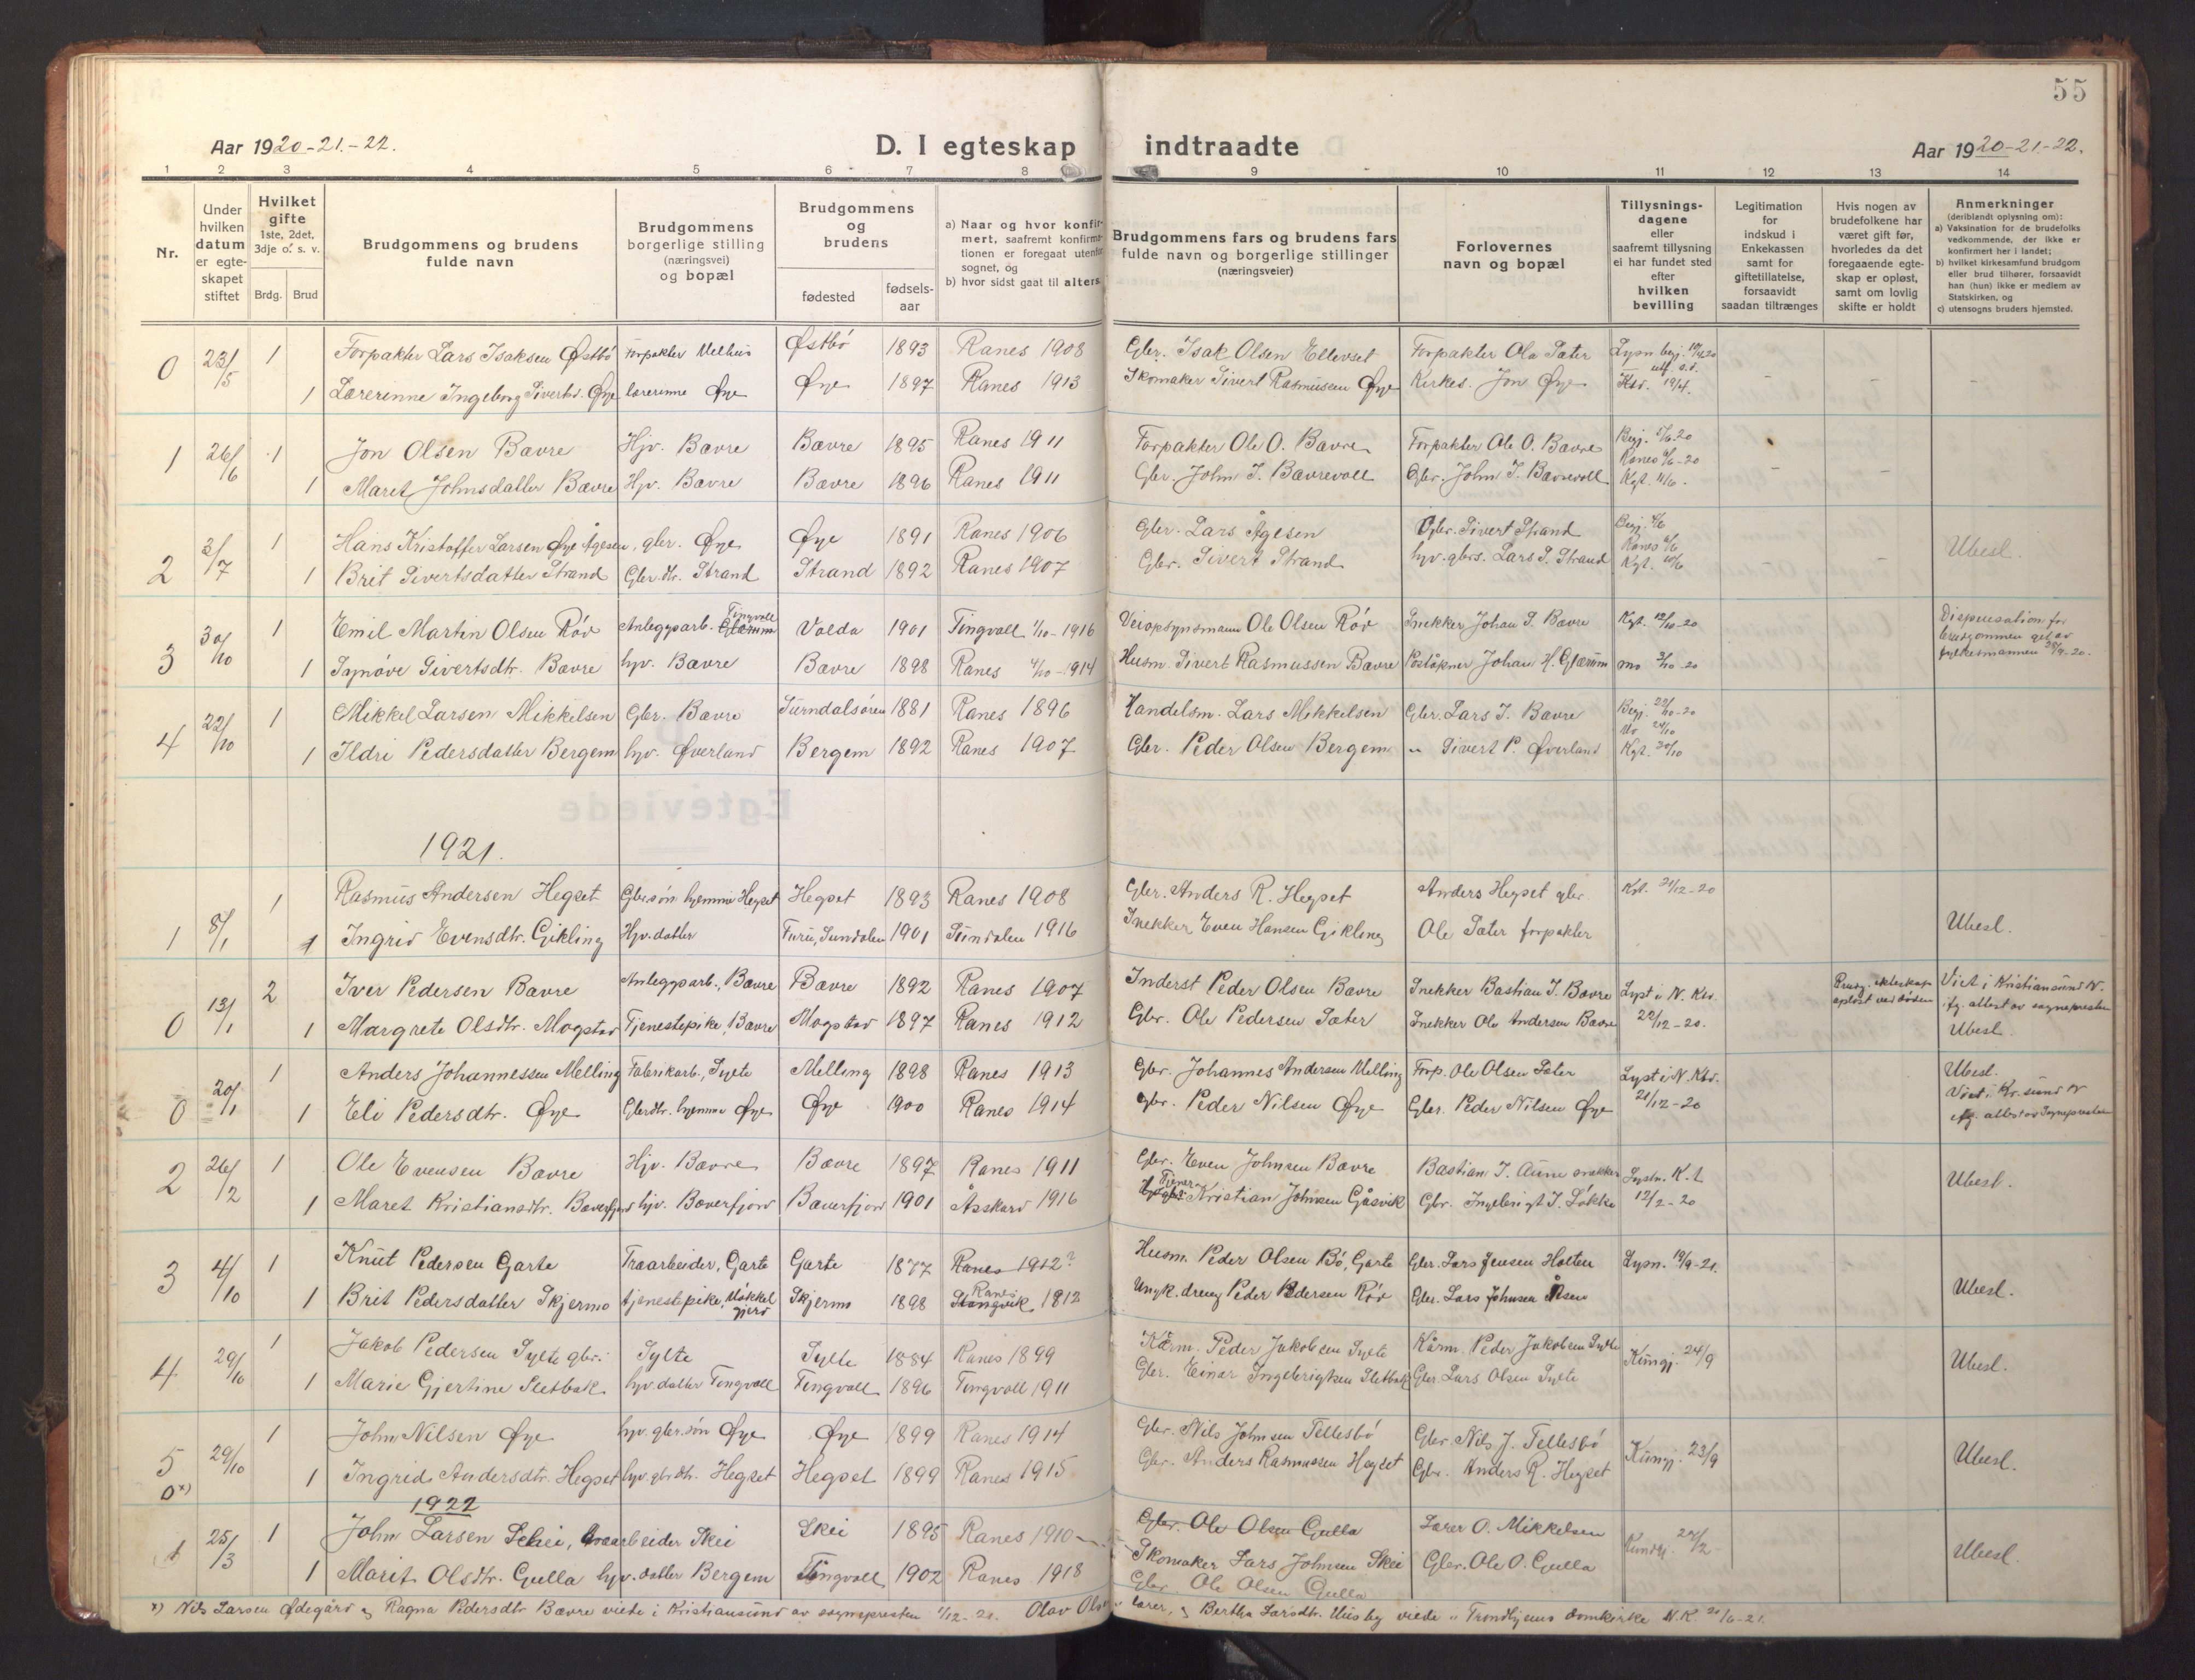 55
Aar 1920-21.-22.
D. I egteskap indtraadte
Aar 1920-21.-22.
1 2 3 4 5 6 7 8 9 10 11 12 13 14
Nr.
Under hvilken datum er egteskapet stiftet
Hvilket gifte 1ste, 2det, 3dje o. s. v.
Brdg. Brud
Brudgommens og brudens fulde navn
Brudgommens borgerlige stilling (næringsvei) og bopæl
Brudgommens og brudens
fødested
fødsels-aar
a) Naar og hvor konfirmert, saafremt konfirmationen er foregaat utenfor sognet, og
b) hvor sidst gaat til alters
Brudgommens fars og brudens fars fulde navn og borgerlige stillinger (næringsveier)
Forlovernes navn og bopæl
Tillysningsdagene eller saafremt tillysning ei har fundet sted efter hvilken bevilling
Legitimation for indskud i Enkekassen samt for giftetillatelse, forsaavidt saadan tiltrænges
Hvis nogen av brudefolkene har været gift før, hvorledes da det foregaaende egteskap er opløst, samt om lovlig skifte er holdt
Anmerkninger (deriblandt oplysning om):
a) Vaksination for de brudefolks vedkommende, der ikke er konfirmert her i landet;
b) hvilket kirkesamfund brudgom eller brud tilhører, forsaavidt han (hun) ikke er medlem av Statskirken, og
c) utensogns bruders hjemsted.
0 23/5 1 Forpakter Lars Isaksen Østbö Forpakter Melhus Østbö 1893 Ranes 1908 Gbr. Isak Olsen Ellevset Forpakter Ola Sæter
1 Lærerinne Ingeborg Sivertsd. Øye lærerinne Øye Øye 1897 Ranes 1913 Skomaker Sivert Rasmussen Øye Kirkes. Jon Øye 19/4.
1 26/6 1 Jon Olsen Bævre Hjv. Bævre Bævre 1895 Ranes 1911 Forpakter Ole O. Bævre Forpakter Ole O. Bævre
1 Maret Johnsdatter Bævre Hjv. Bævre Bævre 1896 Ranes 1911 Gbr. John I. Bævrevoll Gbr. John I. Bævrevoll Kgt. 11/6.
2 3/7 1 Hans Kristoffer Larsen Øye Ågesen, gbr. Øye Øye 1891 Ranes 1906 Gbr. Lars Ågesen Gbr. Sivert Strand
1 Brit Sivertsdatter Strand Gbr.dtr. Strand Strand 1892 Ranes 1907 Gbr. Sivert Strand hjv. gbrs. Lars S. Strand Kgt. 10/6 Ubesl.
3 30/10 1 Emil Martin Olsen Röv Anlegsarb. Glærum Tingvoll Volda 1901 Tingvoll 1/10-1916 Veiopsynsmann Ole Olsen Röv Snekker Johan I. Bævre Kgt. 12/10-20 Dispensation for brudgommen git av fylkesmannen 28/9-20.
1 Synöve Sivertsdtr. Bævre hjv. Bævre Bævre 1898 Ranes 4/10-1914 Husm. Sivert Rasmussen Bævre Poståpner Johan H. Glærum mo 3/10-20
4 22/10 1 Mikkel Larsen Mikkelsen Gbr. Bævre Surndalsören 1881 Ranes 1896 Handelsm. Lars Mikkelsen Gbr. Lars I. Bævre
1 Ildri Pedersdatter Bergem hjv. Øverland Bergem 1892 Ranes 1907 Gbr. Peder Olsen Bergem " Sivert P. Øverland
1921.
1 8/1 1 Rasmus Andersen Hegset Gbrsøn hjemme Hegset Hegset 1893 Ranes 1908 Gbr. Anders R. Hegset Anders Hegset gbr. 21/12-20
1 Ingrid Evensdtr. Gikling Hjv. datter Furu, Sundalen 1901 Sundalen 1916 Snekker Even Hansen Gikling Ole Sæter forpakter Ubesl.
0 13/1 2 Iver Pedersen Bævre Anlegsarb., Bævre Bævre 1892 Ranes 1907 Inderst Peder Olsen Bævre Snekker Bastian I. Bævre Lyst i N. Ktv. Brudg. ekteskap opløst ved døden Viet i Kristiansund N.
1 Margrete Olsdtr. Mogstad Tjenestepike, Bævre Mogstad 1897 Ranes 1912 Gbr. Ole Pedersen Sæter Snekker Ole Andersen Bævre 22/12-20. ifg. attest av sognepresten Ubesl.
0 20/1 1 Anders Johannessen Melling Fabrikarb., Sylte Melling 1898 Ranes 1913 Gbr. Johannes Andersen Melling Forp. Ole Olsen Sæter Lyst i N. Ktv. Ubesl.
1 Eli Pedersdtr. Øye Gbrdtr. hjemme Øye Øye 1900 Ranes 1914 Gbr. Peder Nilsen Øye Gbr. Peder Nilsen Øye 21/12-20 Viet i Kr.sund N ifg. attest av Sognepresten
2 26/2 1 Ole Evensen Bævre Hjv. Bævre Bævre 1897 Ranes 1911 Gbr. Even Johnsen Bævre Bastian I. Aune snekker
1 Maret Kristiansdtr. Bæverfjord hjv. Bæverfjord Bæverfjord 1901 Åsskard 1916 Kristian Johnsen Gåsvik Gbr. Ingebrigt I. Løkke 12/2-20 Ubesl.
3 4/10 1 Knut Pedersen Garte Træarbeider, Garte Garte 1877 Ranes 1912? Husm. Peder Olsen Bö, Garte Gbr. Lars Jensen Holten Lysn. 19/9-21.
1 Brit Pedersdatter Skjermo tjenestepike, Mökkelgjerd Skjermo 1898 Stangvik Ranes 1812 Ungk. dreng Peder Pedersen Röv Gbr. Lars Johnsen Åsen Ubesl.
4 29/10 1 Jakob Pedersen Sylte gbr. Sylte Sylte 1884 Ranes 1899 Kårm. Peder Jakobsen Sylte Kårm. Peder Jakobsen Sylte Kungj. 24/9
1 Marie Gjertine Sletbak hjv. datter Tingvoll Tingvoll 1896 Tingvoll 1911 Gbr. Einar Ingebrigtsen Sletbak Gbr. Lars Olsen Sylte Ubesl.
5 29/10 1 John Nilsen Øye hjv. gbr.søn Øye Øye 1899 Ranes 1914 Gbr. Nils Johnsen Tellesbö Gbr. Nils J. Tellesbö Kungj. 23/9
0x) 1 Ingrid Andersdtr. Hegset hjv. gbrdtr. Hegset Hegset 1899 Ranes 1915 Gbr. Anders Rasmussen Hegset Gbr. Anders R. Hegset Ubesl.
1922
1 25/3 1 John Larsen Schei, træarbeider Skei Skei 1895 Ranes 1910 Gbr. Ole Olsen Gulla Lærer O. Mikkelsen
Skomaker Lars Johnsen Skei
1 Marit Olsdtr. Gulla hjv. datter Bergem Tingvoll 1902 Ranes 1918 Gbr. Ole Olsen Gulla Gbr. Ole O. Gulla Ubesl.
x) Nils Larsen Ødegård og Ragna Pedersdtr Bævre viede i Kristiansund av sognepresten 1/12-21. Olav Olsen lærer, og Bertha Larsdtr. Husby viede i Trondhjems domkirke N.K. 21/6-21.